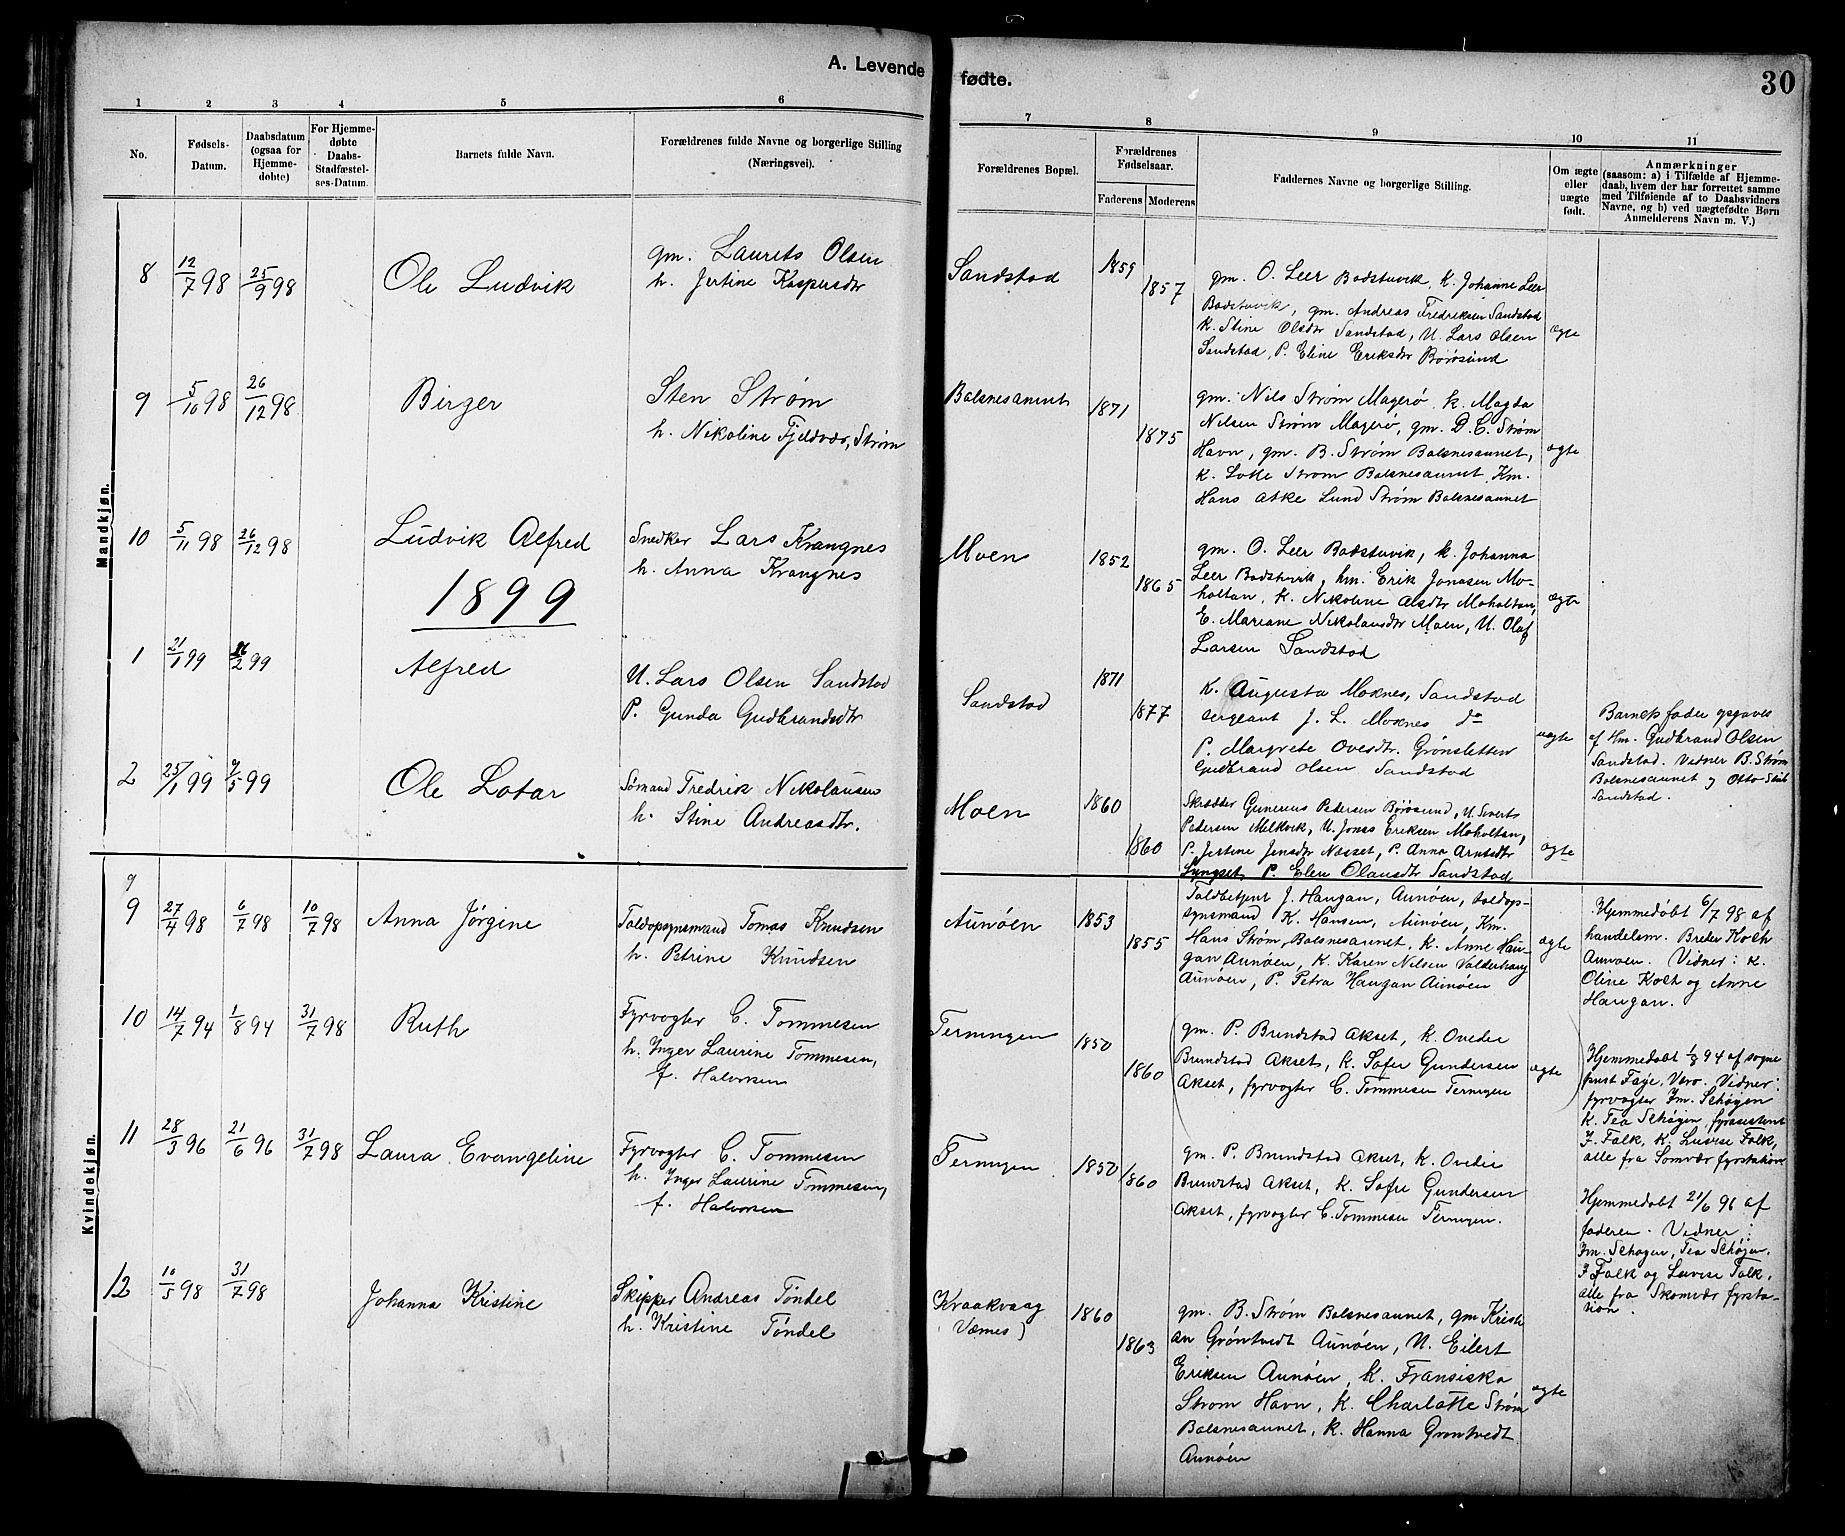 A. Levende fødte.
30
1 2 3 4 5 6 7 8 9 10 11
No.
Fødsels-
Datum.
Daabsdatum
(ogsaa for
Hjemme-
døbte)
For Hjemme-
døbte
Daabs-
Stadfæstel-
ses-Datum.
Barnets fulde Navn.
Forældrenes fulde Navne og borgerlige Stilling
(Næringsvei).
Forældrenes Bopæl.
Forældrenes
Fødselsaar.
Faderens Moderens
Faddernes Navne og borgerlige Stilling.
Om ægte
eller
uægte
født.
Anmærkninger
(saasom: a) i Tilfælde af Hjemme-
daab, hvem der har forrettet samme
med Tilføiende af to Daabsvidners
Navne, og b) ved uægtefødte Børn
Anmelderens Navn m. V.)
Mandkjøn.
8 12/7 98 25/9 98 Ole Ludvik
gm. Laurits Olsen
h. Jertine Kaspersdtr
Sandstad 1859 1857
gm. O. Leer Badstuvik, K. Johanne Leer
Badstuvik, gm. Andreas Fredriksen Sandstad
K. Stine Olsdtr Sandstad, U. Lars Olsen
Sandstad, P. Eline Eriksdtr Børøsund
ægte
9 5/10 98 26/12 98 Birger
Sten Strøm
h. Nikoline Fjeldvær, Strøm
Balsnesaunet 1871 1875
gm. Nils Strøm Magerø, K. Magda
Nilsen Strøm Magerø, gm. D. C. Strøm
Havn, gm. B. Strøm Balsnesaunet,
K. Lotte Strøm Balsnesaunet, Km.
Hans Atke Lund Strøm Balsnesaunet
ægte
10 5/11 98 26/12 98 Ludvik Alfred
Snedker Lars Krangnes
h. Anna Krangnes
Moen 1852 1865
gm. O. Leer Badstuvik, K. Johanna
Leer Badstuvik, hm. Erik Jonasen Mo-
holtan, K. Nikoline Olsdtr Moholtan,
E. Mariane Nikolausdtr Moen, U. Olaf
Larsen Sandstad
ægte
1899
1 21/1 99 26/2 99 Alfred
U. Lars Olsen Sandstad
P. Gunda Gudbrandsdtr
Sandstad 1871 1877
K. Augusta Moknes, Sandstad
sergeant J. L. Moknes do
P. Margrete Ovesdtr Grønsletten
Gudbrand Olsen Sandstad
uægte
Barnets fader opgaves
af Hm. Gudbrand Olsen
Sandstad. Vidner B. Strøm
Balsnesaunet og Otto
Sandstad.
2 25/1 99 7/5 99 Ole Lotar
Sømand Fredrik Nikolausen
h. Stine Andreasdtr.
Moen 1860 1860
Skrædder Gunerius Pedersen Børøsund, U. Sivert
Pedersen Melkvik, U. Jonas Eriksen Moholtan,
P. Jertine Jensdtr Næsset, P. Anna Arntsdtr
P. Elen Olausdtr Sandstad
ægte
Kvindekjøn.
9 27/4 98 6/7 98 10/7 98 Anna Jørgine
Toldopsynsmand Tomas Knudsen
h. Petrine Knudsen
Aunøen 1853 1855
Toldbetjent J. Haugan, Aunøen, toldop-
synsmand K. Hansen, Aunøen, Km.
Hans Strøm, Balsnesaunet, K. Anne Hau-
gan Aunøen, K. Karen Nilsen Valderhaug
Aunøen, P. Petra Haugan Aunøen
ægte
Hjemmedøbt 6/7 98 af
handelsm. Breder Koch
Aunøen. Vidner: K.
Oline Koch og Anne
Haugan.
10 14/7 94 1/8 94 31/7 98 Ruth
Fyrvogter C. Tommesen
h. Inger Laurine Tommesen,
f. Halvorsen
Terningen 1850 1860
gm. P. Brundstad Akset, K. Ovedie
Brundstad Akset, K. Sofie Gundersen
Akset, fyrvogter C. Tommesen Terningen
ægte
Hjemmedøbt 1/8 94 af sogne
prest Faye, Værø. Vidner:
fyrvogter Jm. Schøgen
K. Tea Schøgen, fyrassistent
J. Falk, K. Luvise Falk,
alle fra Somvær fyrstation
11 28/3 96 21/6 96 31/7 98 Laura Evangeline
Fyrvogter C. Tommesen
h. Inger Laurine Tommesen,
f. Halvorsen
Terningen 1850 1860
gm. P. Brundstad Akset, K. Ovedie
Brundstad Akset, K. Sofie Gundersen
Akset, fyrvogter C. Tommesen Terningen.
Hjemmedøbt 21/6 96 af
faderen. Vidner:
Jm. Schøgen, Tea Schøgen.
J Falk og Luvise Falk,
alle fra Skomvær fyrsta-
tion.
12 10/5 98 31/7 98 Johanna Kristine
Skipper Andreas Tøndel
h. Kristine Tøndel
Kraakvaag
Værnes) 1860 1863
gm. B. Strøm Balsnesaunet, gm Kristi
an Grøntvedt Aunøen, U. Eilert
Eriksen Aunøen, K. Fransiska
Strøm Havn, K. Charlotte Strøm
Balsnesaunet, K. Hanna Grøntvedt
Aunøen
ægte